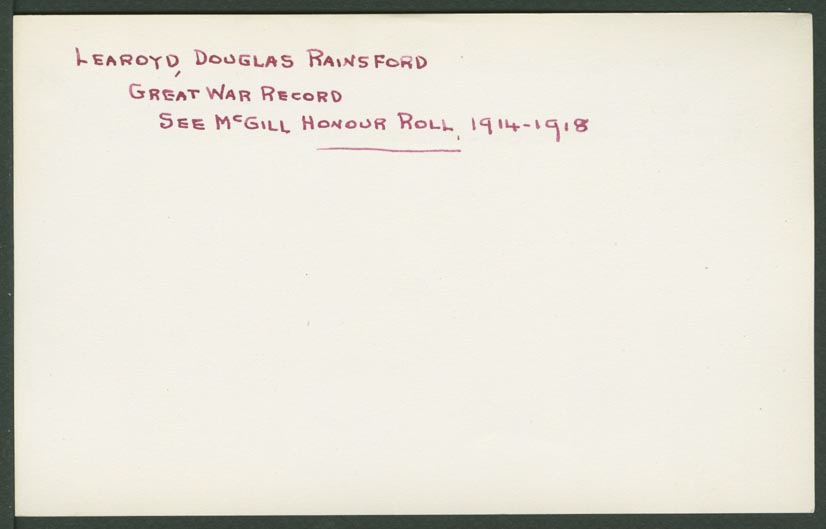 LEAROYD, DOUGLAS RAINSFORD
GREAT WAR RECORD
SEE McGILL HONOUR ROLL, 1914-1918